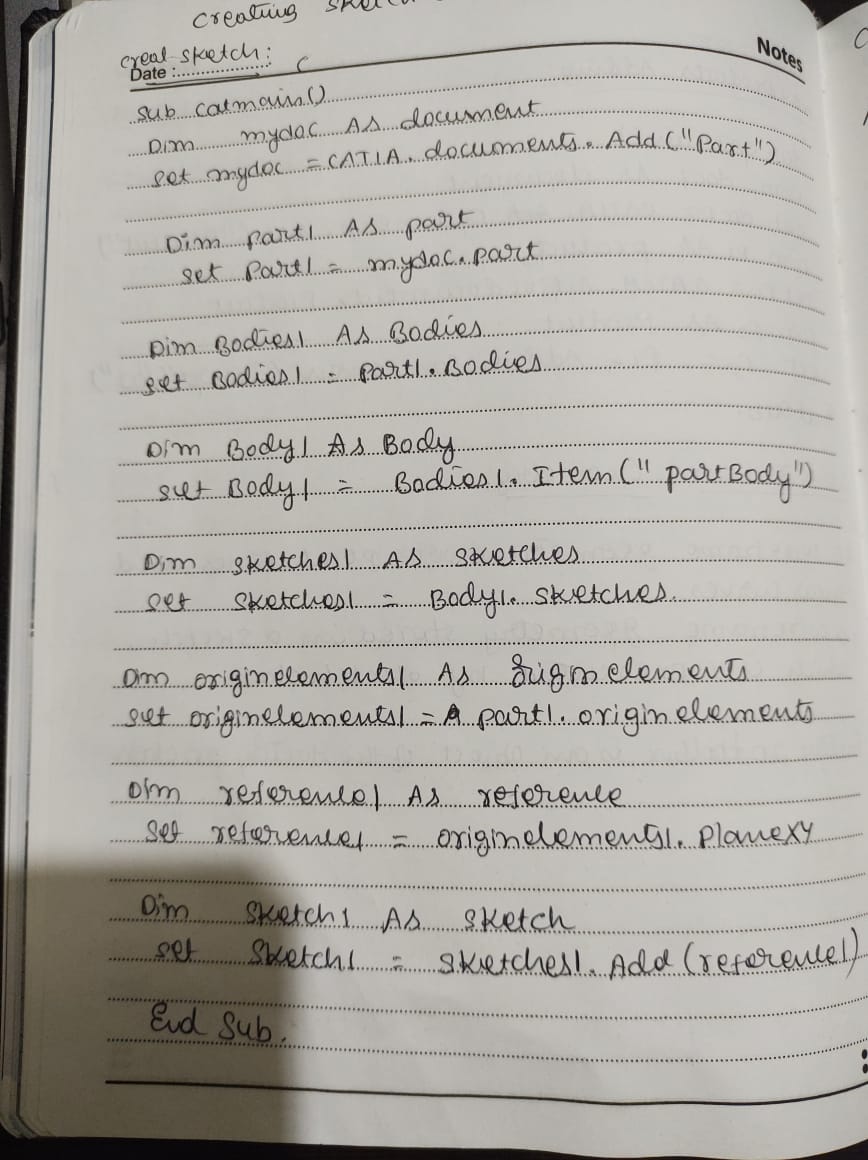 creating
creat sketch:
Date :
Notes
sub catmain()
Dim mydoc As document
set mydoc = CATIA. documents. Add ("Part")
Dim part1 As part
set Part1 = mydoc. part
Dim Bodies1 As Bodies
set Bodies1 = part1. Bodies
Dim Body1 As Body
set Body1 = Bodies1. Item (" partBody")
Dim sketches1 As sketches
set sketches1 = Body1. sketches.
Dim originelements1 As originelements
set originelements1 = part1. originelements
Dim reference1 As reference
set reference1 = originelements1. Planexy
Dim sketch1 As sketch
set sketch1 = sketches1. Add (reference1)
End Sub.